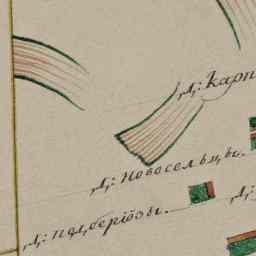 Д: Карп
Д: Новосельцы.
Д: подберіозы.
Д: